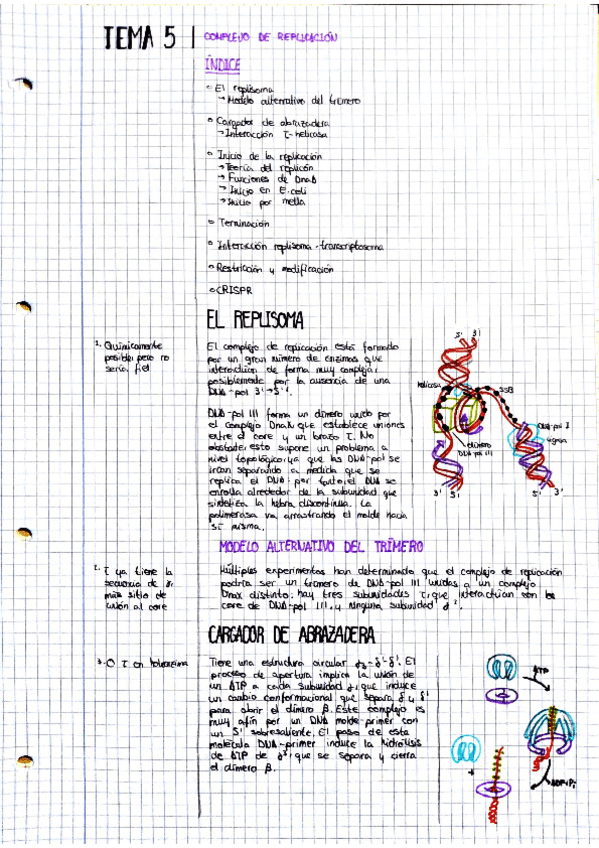 TEMA 5 | COMPLEJO DE REPLICACIÓN
ÍNDICE
◦ El replisoma
→ Modelo alternativo del trímero
◦ Cargador de abrazadera
→ Interacción τ-helicasa
◦ Inicio de la replicación
→ Teoría del replicón
→ Funciones de DnaA
→ Inicio en E.coli
→ Inicio por mella
◦ Terminación
◦ Interacción replisoma-transcriptosoma
◦ Restricción y modificación
◦ CRISPR
EL REPLISOMA
1. Químicamente
posible, pero no
sería fiel
El complejo de replicación está formado
por un gran número de enzimas que
interactúan de forma muy compleja,
posiblemente por la ausencia de una
DNA-pol 3'→5'¹.
DNA-pol III forma un dímero unido por
el complejo DnaX que establece uniones
entre el core y un brazo τ. No
obstante, esto supone un problema a
nivel topológico, ya que las DNA-pol se
irían separando a medida que se
replica el DNA; por tanto, el DNA se
enrolla alrededor de la subunidad que
sintetiza la hebra discontinua. La
polimerasa va arrastrando el molde hacia
sí misma.
5' 3'
helicasa
SSB
DNA-pol I
ligasa
dímero
DNA-pol III
3' 5'
5' 3'
MODELO ALTERNATIVO DEL TRÍMERO
2. τ ya tiene la
secuencia de γ,
más sitio de
unión al core
Múltiples experimentos han determinado que el complejo de replicación
podría ser un trímero de DNA-pol III unidas a un complejo
DnaX distinto: hay tres subunidades τ, que interactúan con los
core de DNA-pol III, y ninguna subunidad γ².
CARGADOR DE ABRAZADERA
3. O τ en holoenzima
Tiene una estructura circular γ₃-δ-δ'. El
proceso de apertura implica la unión de
un ATP a cada subunidad γ, que induce
un cambio conformacional que separa δ y δ'
para abrir el dímero β. Este complejo es
muy afín por un DNA molde-primer con
un 5' sobresaliente. El paso de esta
molécula DNA-primer induce la hidrólisis
de ATP de γ³, que se separa y cierra
el dímero β.
ATP
+
ADP+Pi